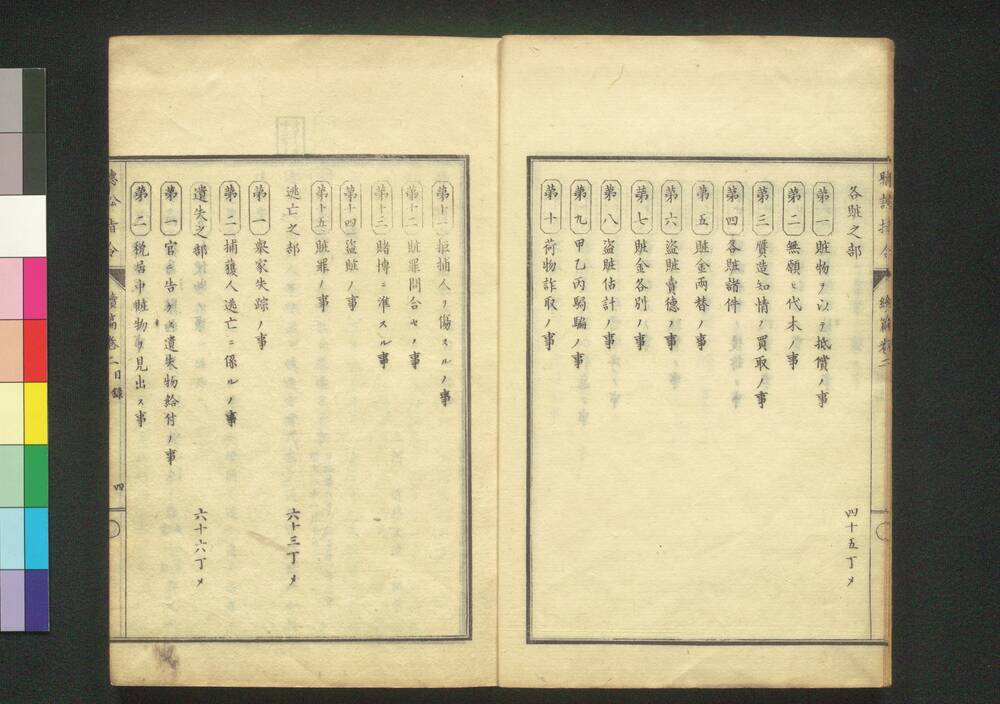 各賍之部 四十五丁メ
第一 賍物ヲ以テ抵償ノ事
第二 無願ヒ代木ノ事
第三 贋造知情ノ買取ノ事
第四 各賍諸件
第五 賍金両替ノ事
第六 盗賍賣徳ノ事
第七 賍金各別ノ事
第八 盗賍估計ノ事
第九 甲乙丙騙ノ事
第十 荷物詐取ノ事
第十一 拒捕人ヲ傷スルノ事
第十二 賍罪問合セノ事
第十三 賭博ニ準スル事
第十四 盗賍ノ事
第十五 賍罪ノ事
逃亡之部 六十三丁メ
第一 挙家失踪ノ事
第二 捕獲人逃亡ニ係ルノ事
遺失之部 六十六丁メ
第一 官ニ告ケス遺失物給付ノ事
第二 税居中賍物ヲ見出ス事
續篇巻二目録 四